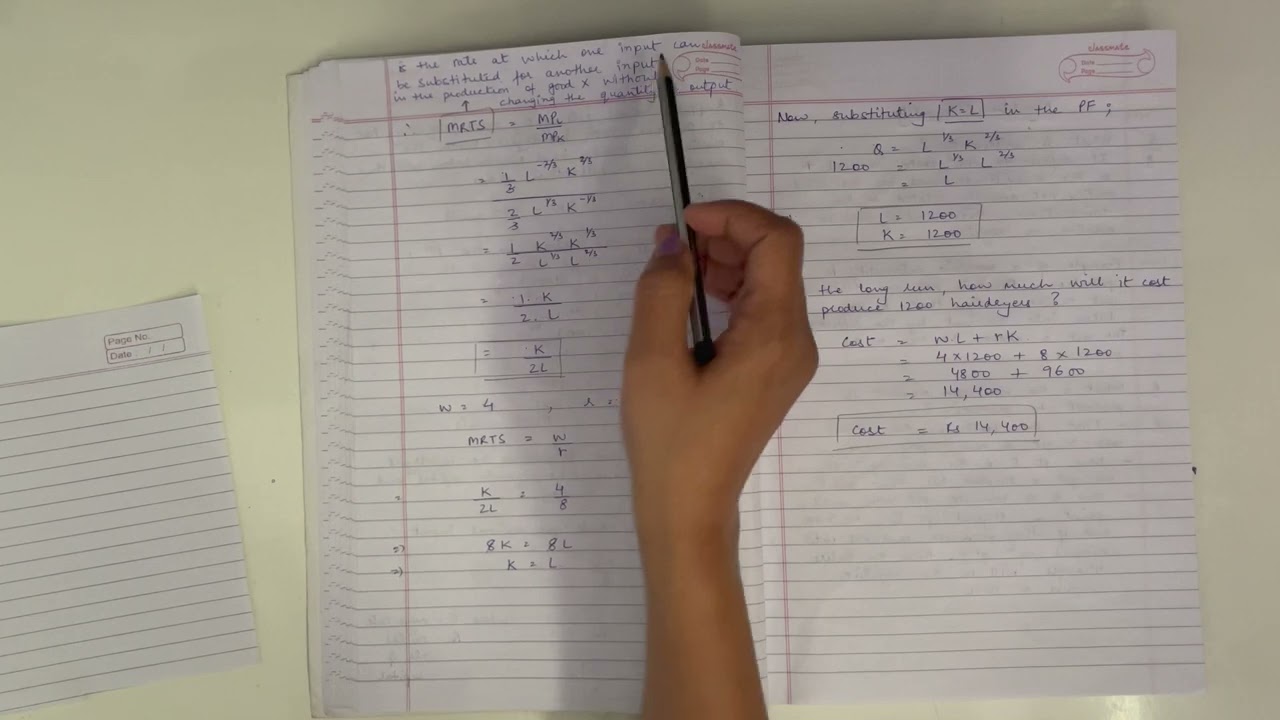 Page No.
Date / /
is the rate at which one input can
be substituted for another input
in the production of good X without
changing the quantity output
∴ MRTS = MPL / MPK
= 1/3 L^-2/3 K^2/3
2/3 L^1/3 K^-1/3
= 1/2 K^2/3 K^1/3 / L^1/3 L^2/3
= 1 . K / 2 . L
= K / 2L
w = 4 ,
MRTS = w / r
K / 2L = 4 / 8
⇒ 8K = 8L
⇒ K = L
classmate
Date
Page
classmate
Date
Page
Now, substituting K = L in the PF ;
Q = L^1/3 K^2/3
1200 = L^1/3 L^2/3
= L
L = 1200
K = 1200
the long run, how much will it cost
produce 1200 hairdryers ?
Cost = wL + rK
= 4 × 1200 + 8 × 1200
= 4800 + 9600
= 14,400
Cost = Rs 14,400